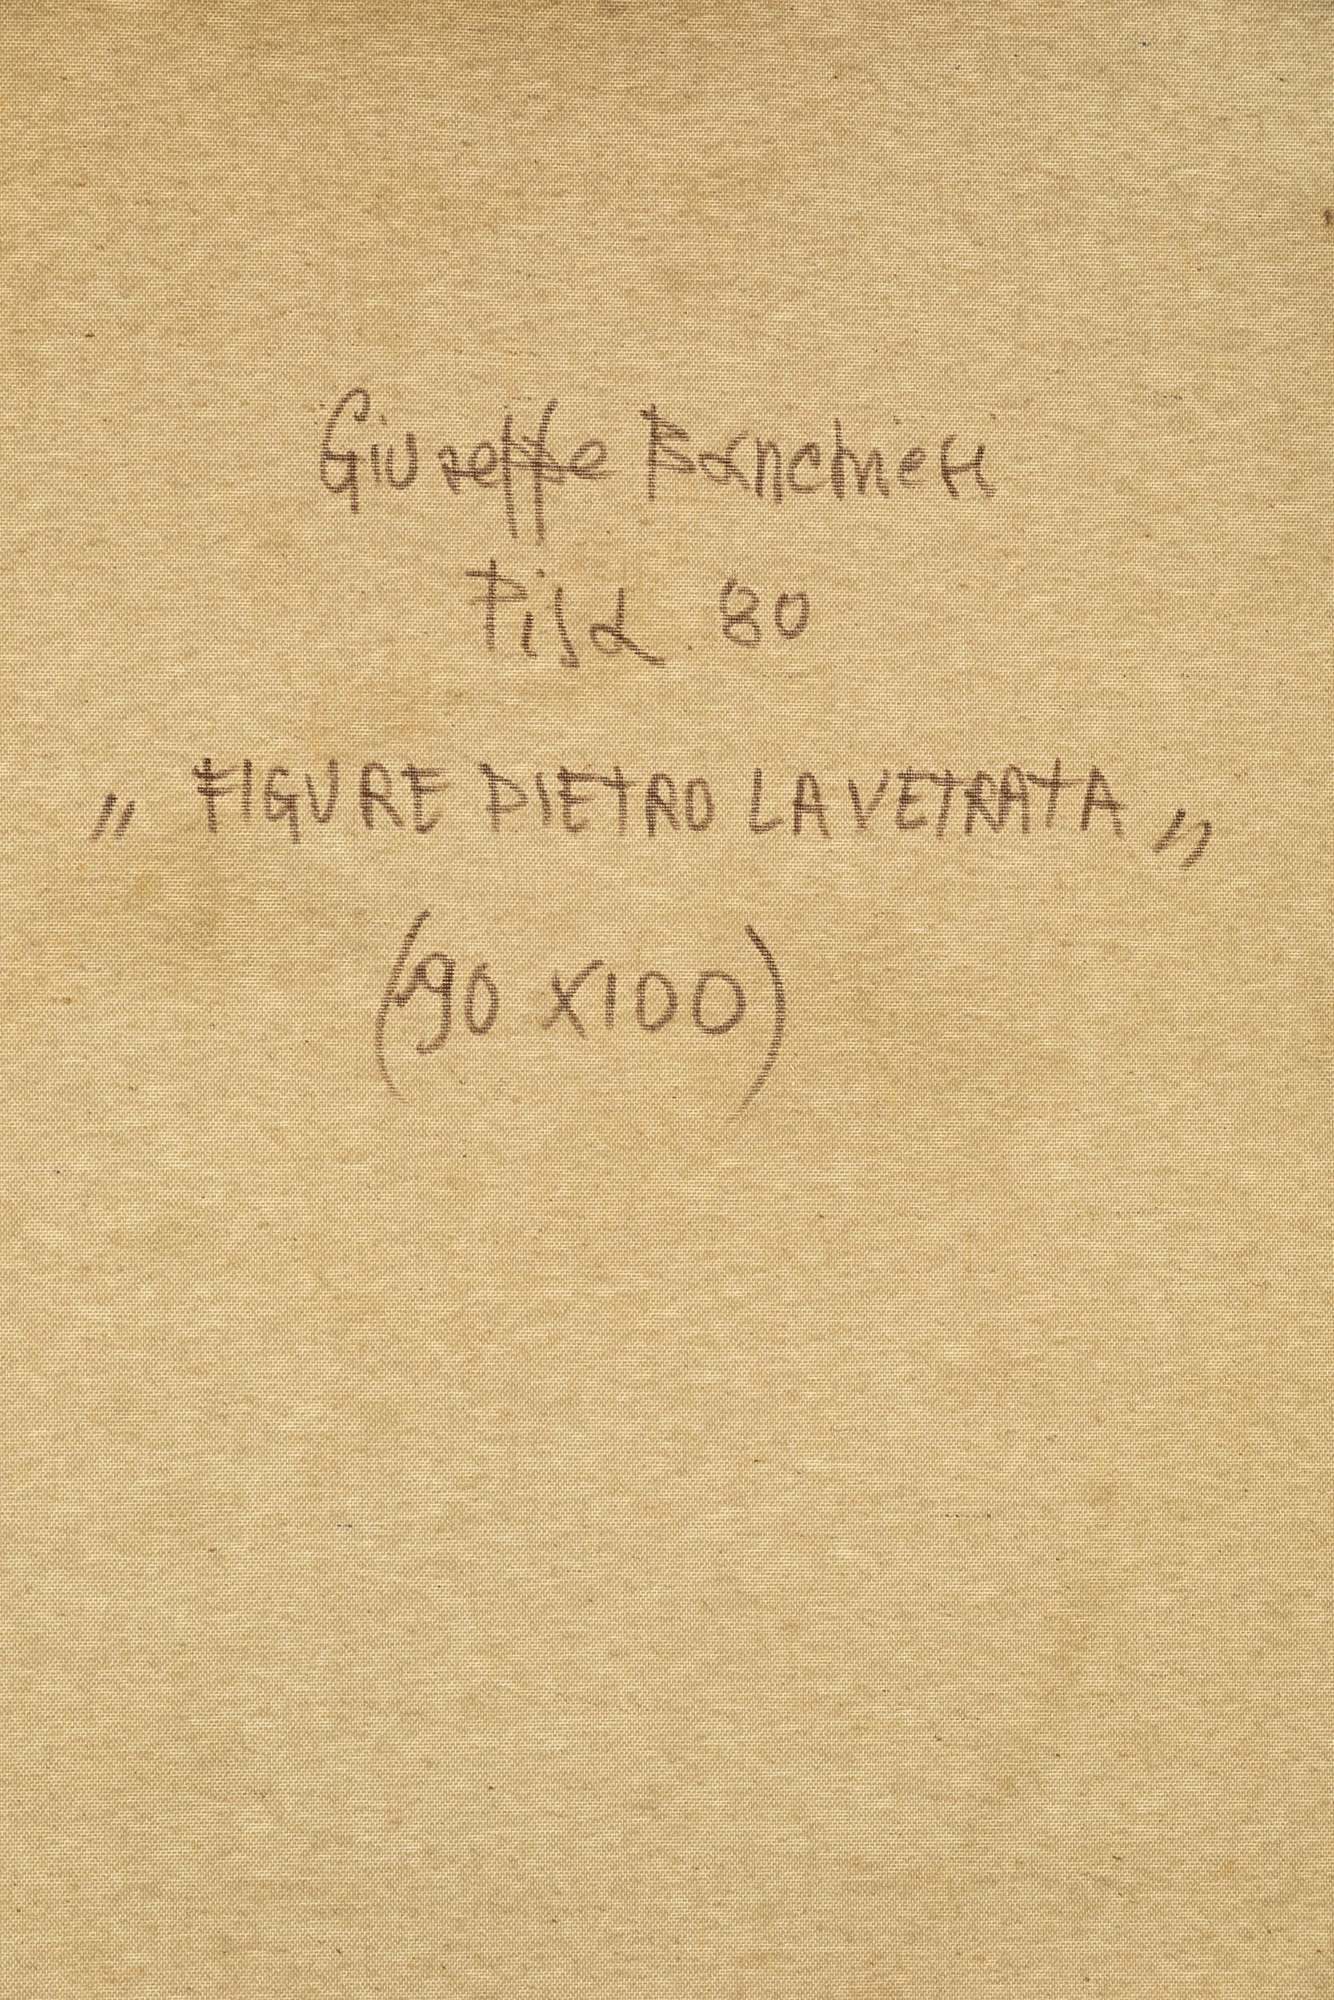 Giuseppe Banchieri
Pisa 80
" FIGURE DIETRO LA VETRATA "
(90 x 100)